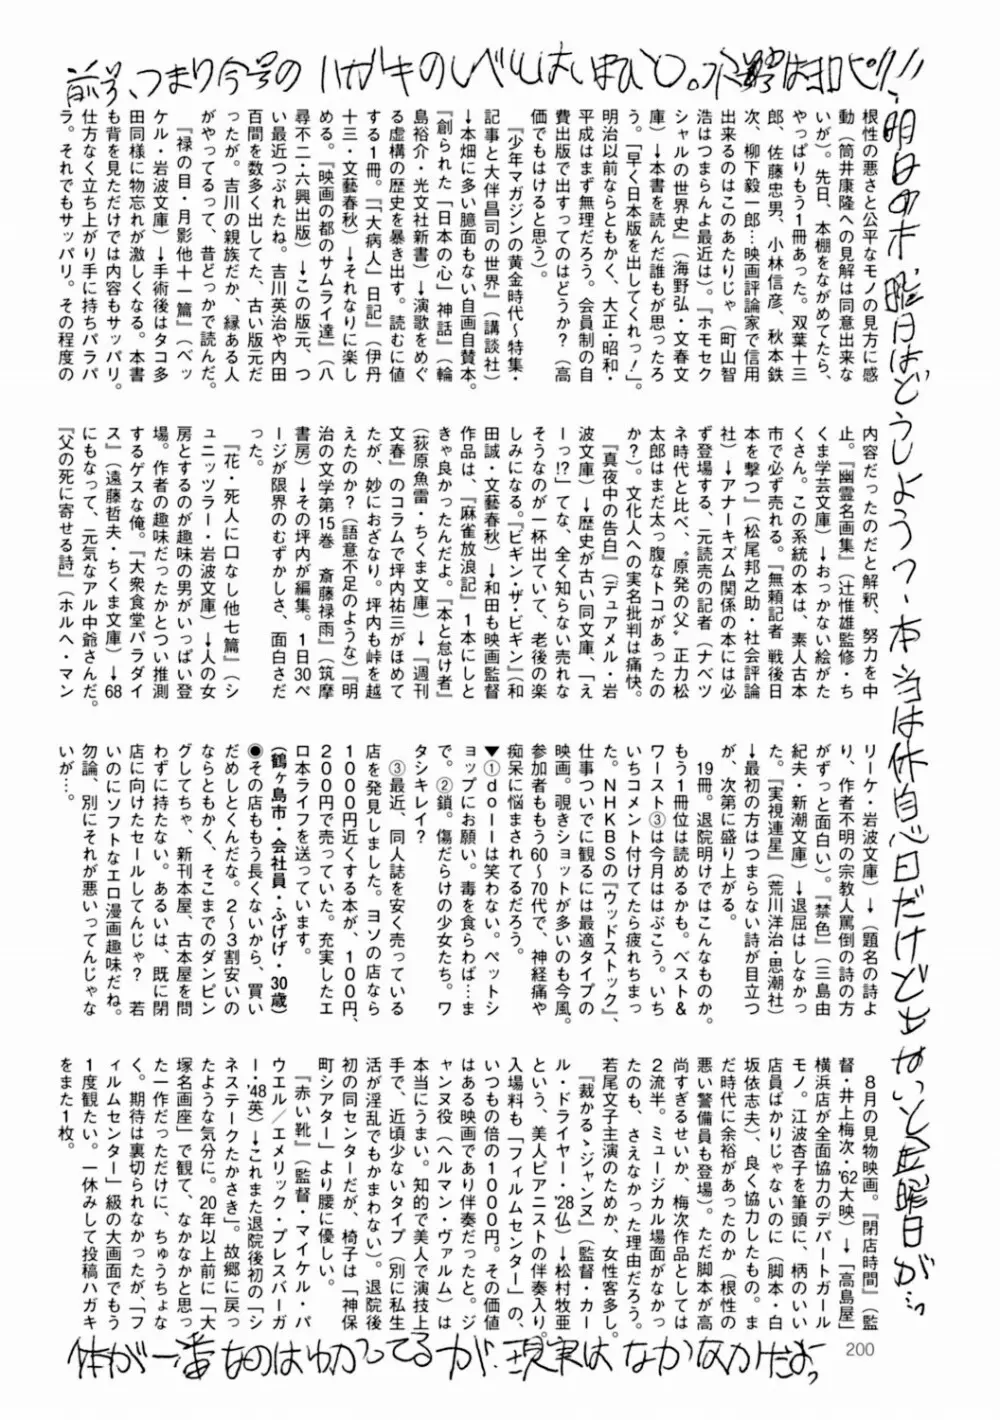 前号、つまり今号のハガキのレベルはいまひとつ。水野はロビッ!!
根性の悪さと公平なモノの見方に感
動(筒井康隆への見解は同意出来な
いが)。先日、本棚をながめてたら、
やっぱりもう1冊あった。双葉十三
郎、佐藤忠男、小林信彦、秋本鉄
次、柳下毅一郎…映画評論家で信用
出来るのはこのあたりじゃ(町山智
浩はつまらんよ最近は)。『ホモセク
シャルの世界史』(海野弘・文春文
庫)→本書を読んだ誰もが思ったろ
う。「早く日本版を出してくれっ!」。
明治以前ならともかく、大正・昭和・
平成はまず無理だろう。会員制の自
費出版で出すってのはどうか?(高
価でもはけると思う)。
『少年マガジンの黄金時代〜特集・
記事と大伴昌司の世界』(講談社)
→本畑に多い臆面もない自画自賛本。
『創られた「日本の心」神話』(輪
島裕介・光文社新書)→演歌をめぐ
る虚構の歴史を暴き出す。読むに値
する1冊。『「大病人」日記』(伊丹
十三・文藝春秋)→それなりに楽し
める。『映画の都のサムライ達』(八
尋不二・六興出版)→この版元、つ
い最近つぶれたね。吉川英治や内田
百閒を数多く出してた、古い版元だ
ったが。吉川の親族だか、縁ある人
がやってるって、昔どっかで読んだ。
『禄の目・月影他十一篇』(ベッ
ケル・岩波文庫)→手術後はタコ多
田同様に物忘れが激しくなる。本書
も背を見ただけでは内容もサッパリ。
仕方なく立ち上がり手に持ちパラパ
ラ。それでもサッパリ。その程度の
内容だったのだと解釈、努力を中
止。『幽霊名画集』(辻惟雄監修・ち
くま学芸文庫)→おっかない絵がた
くさん。この系統の本は、素人古本
市で必ず売れる。『無頼記者 戦後日
本を撃つ』(松尾邦之助・社会評論
社)→アナーキズム関係の本には必
ず登場する、元読売の記者(ナベツ
ネ時代と比べ、〝原発の父〟正力松
太郎はまだ太っ腹なトコがあったの
か?)。文化人への実名批判は痛快。
『真夜中の告白』(デュアメル・岩
波文庫)→歴史が古い同文庫、「え
ーっ!?」てな、全く知らない売れな
そうなのが一杯出ていて、老後の楽
しみになる。『ビギン・ザ・ビギン』(和
田誠・文藝春秋)→和田も映画監督
作品は、『麻雀放浪記』1本にしと
きゃ良かったんだよ。『本と怠け者』
(荻原魚雷・ちくま文庫)→『週刊
文春』のコラムで坪内祐三がほめて
たが、妙におざなり。坪内も峠を越
えたのか?(語意不足のような)『明
治の文学第15巻 斎藤禄雨』(筑摩
書房)→その坪内が編集。1日30ペ
ージが限界のむずかしさ、面白さだ
った。
『花・死人に口なし他七篇』(シ
ュニッツラー・岩波文庫)→人の女
房とするのが趣味の男がいっぱい登
場。作者の趣味だったかとつい推測
するゲスな俺。『大衆食堂パラダイ
ス』(遠藤哲夫・ちくま文庫)→68
にもなって、元気なアル中爺さんだ。
『父の死に寄せる詩』(ホルヘ・マン
リーケ・岩波文庫)→(題名の詩よ
り、作者不明の宗教人罵倒の詩の方
がずっと面白い)。『禁色』(三島由
紀夫・新潮文庫)→退屈はしなかっ
た。『実視連星』(荒川洋治・思潮社)
→最初の方はつまらない詩が目立つ
が、次第に盛り上がる。
19冊。退院明けではこんなものか。
もう1冊位は読めるかも。ベスト&
ワースト③は今月ははぶこう。いち
いちコメント付けてたら疲れちまっ
た。NHKBSの『ウッドストック』、
仕事ついでに観るには最適タイプの
映画。覗きショットが多いのも今風。
参加者ももう60〜70代で、神経痛や
痴呆に悩まされてるだろう。
▼①dollは笑わない。ペットシ
ョップにお願い。毒を食らわば…ま
で。②鎖。傷だらけの少女たち。ワ
タシキレイ?
③最近、同人誌を安く売っている
店を発見しました。ヨソの店なら
1000円近くする本が、100円、
200円で売っていた。充実したエ
ロ本ライフを送っています。
(鶴ヶ島市・会社員・ふげげ・30歳)
◉その店ももう長くないから、買い
だめしとくんだな。2〜3割安いの
ならともかく、そこまでのダンピン
グしてちゃ、新刊本屋、古本屋を問
わずに持たない。あるいは、既に閉
店に向けたセールしてんじゃ? 若
いのにソフトなエロ漫画趣味だね。
勿論、別にそれが悪いってんじゃな
いが…。
8月の見物映画。『閉店時間』(監
督・井上梅次・'62大映)→「高島屋」
横浜店が全面協力のデパートガール
モノ。江波杏子を筆頭に、柄のいい
店員ばかりじゃないのに(脚本・白
坂依志夫)、良く協力したもの。ま
だ時代に余裕があったのか(根性の
悪い警備員も登場)。ただ脚本が高
尚すぎるせいか、梅次作品としては
2流半。ミュージカル場面がなかっ
たのも、さえなかった理由だろう。
若尾文子主演のためか、女性客多し。
『裁かるゝジャンヌ』(監督・カー
ル・ドライヤー・'28仏)→松村牧亜
という、美人ピアニストの伴奏入り。
入場料も「フィルムセンター」の、
いつもの倍の1000円。その価値
はある映画であり伴奏だったと。ジ
ャンヌ役(ヘルマン・ヴァルム)は
本当にうまい。知的で美人で演技上
手で、近頃少ないタイプ(別に私生
活が淫乱でもかまわない)。退院後
初の同センターだが、椅子は「神保
町シアター」より腰に優しい。
『赤い靴』(監督・マイケル・パ
ウエル/エメリック・プレスバーガ
ー・'48英)→これまた退院後初の「シ
ネステークたかさき」。故郷に戻っ
たような気分に。20年以上前に「大
塚名画座」で観て、なかなかと思っ
た一作だっただけに、ちゅうちょな
く。期待は裏切られなかったが、「フ
ィルムセンター」級の大画面でもう
1度観たい。一休みして投稿ハガキ
をまた1枚。
明日の木曜日はどうしよう?本当は休息日だけどもねいと金曜日が…
体が一番なのはわかってるが、現実はなかなかだよっ
200